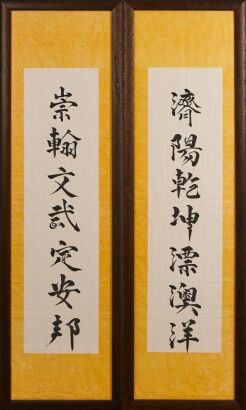 濟陽乾坤漂澳洋
崇翰文武定安邦